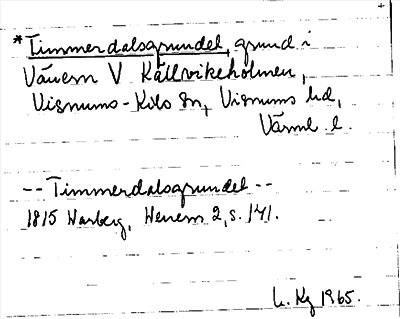 *Timmerdalsgrundet, grund i
Vänern V Källvikeholmen,
Visnums-Kils sn, Visnums hd,
Värml. l.
-- Timmerdalsgrundet --
1815 Warberg, Wenern 2, s. 141.
Kg 1965.